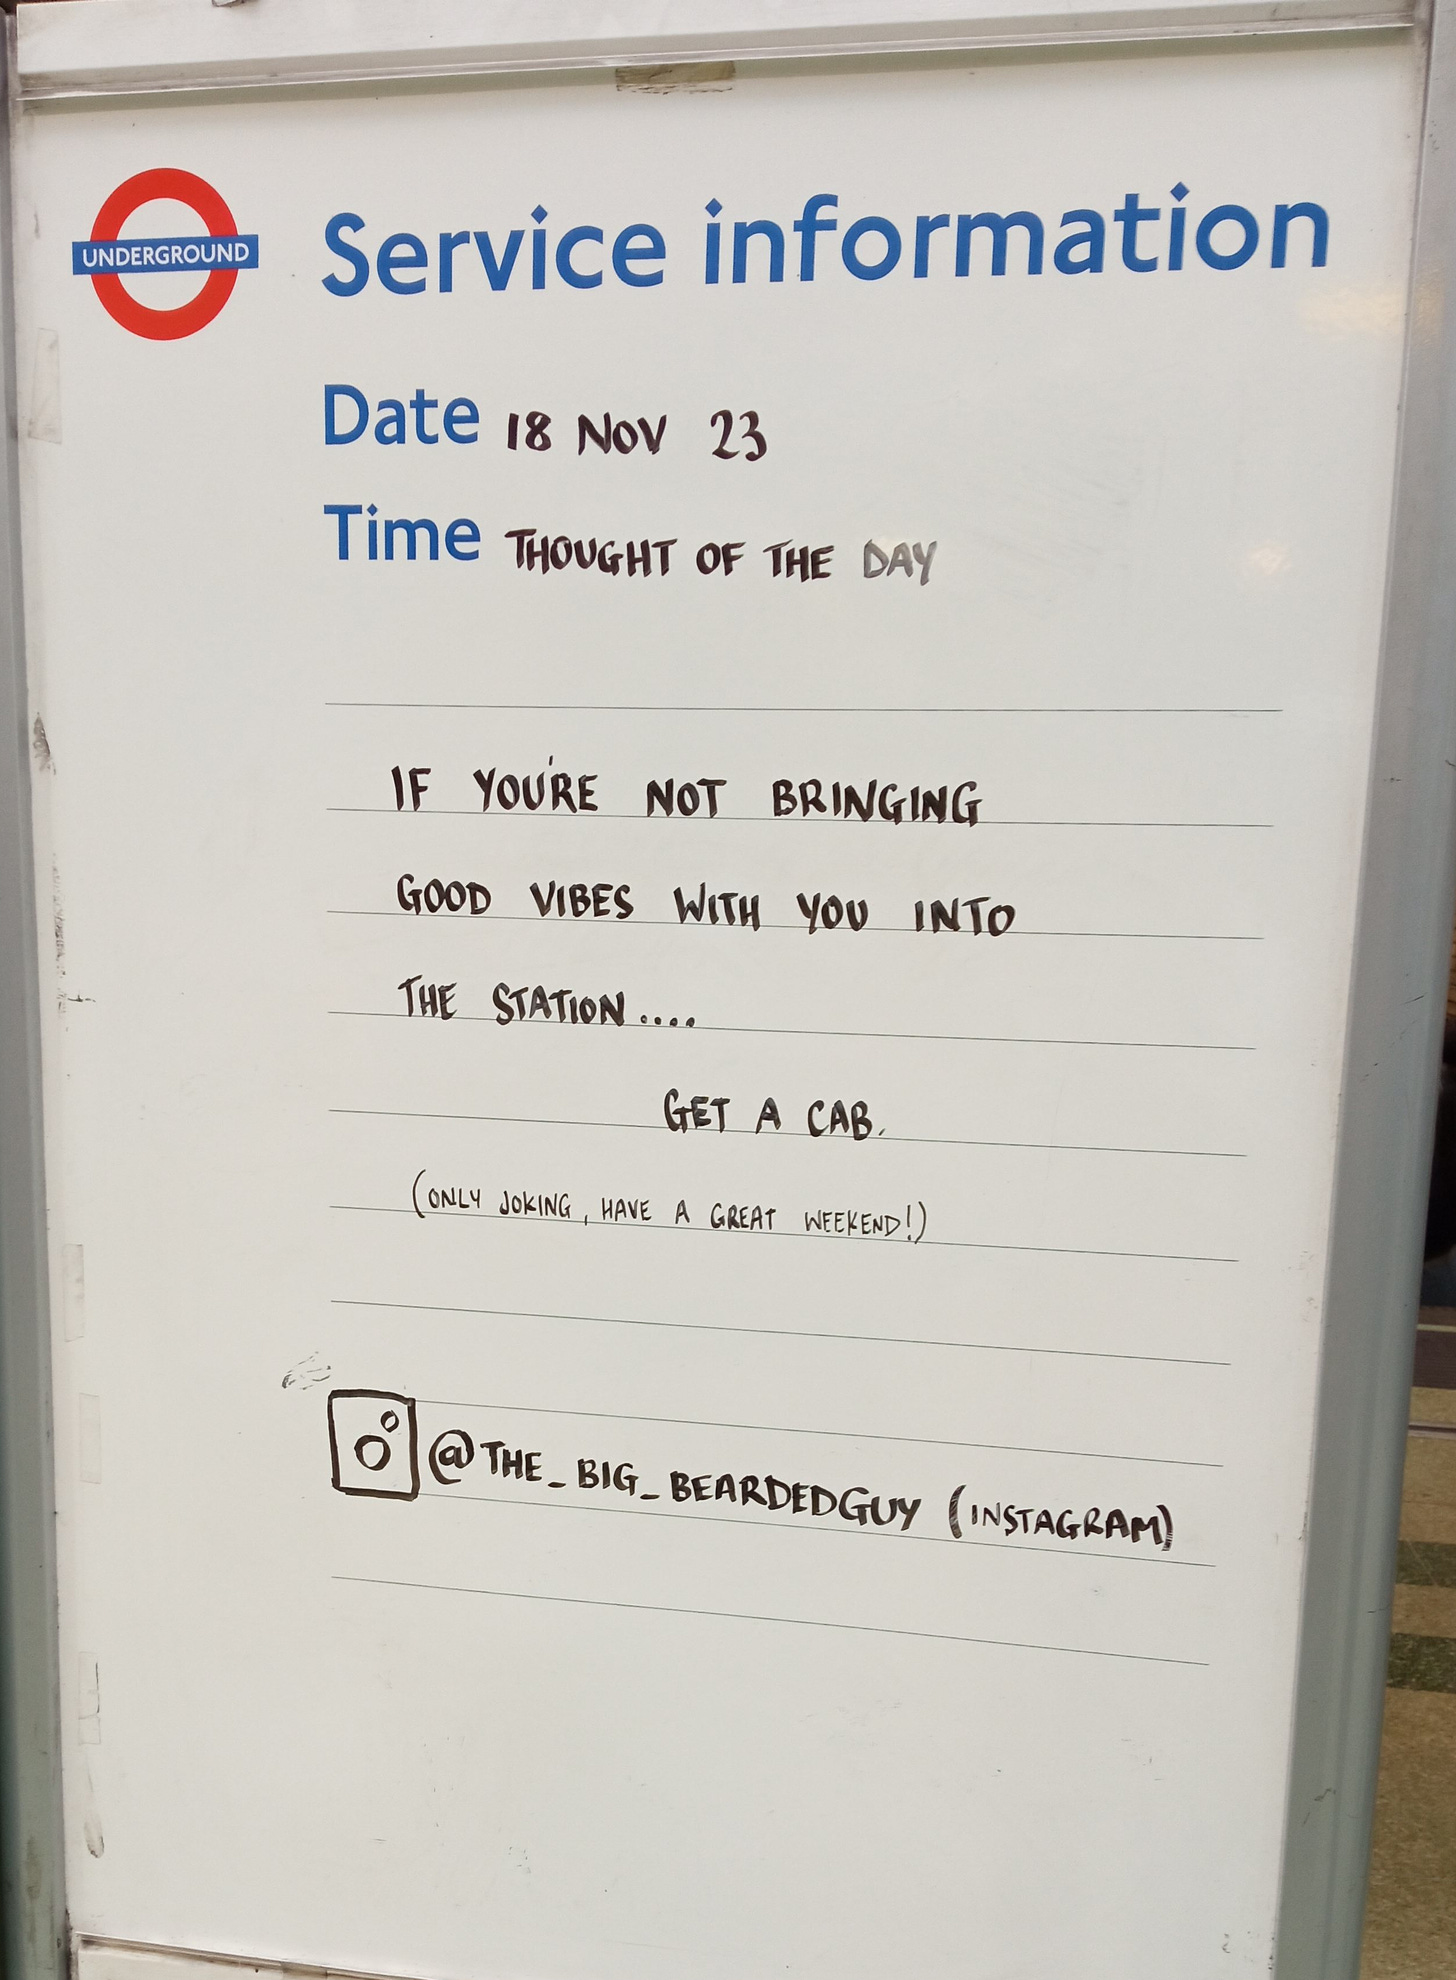 UNDERGROUND
Service information
Date 18 NOV 23
Time THOUGHT OF THE DAY
IF YOU'RE NOT BRINGING
GOOD VIBES WITH YOU INTO
THE STATION....
GET A CAB.
(ONLY JOKING, HAVE A GREAT WEEKEND!)
@THE_BIG_BEARDEDGUY (INSTAGRAM)